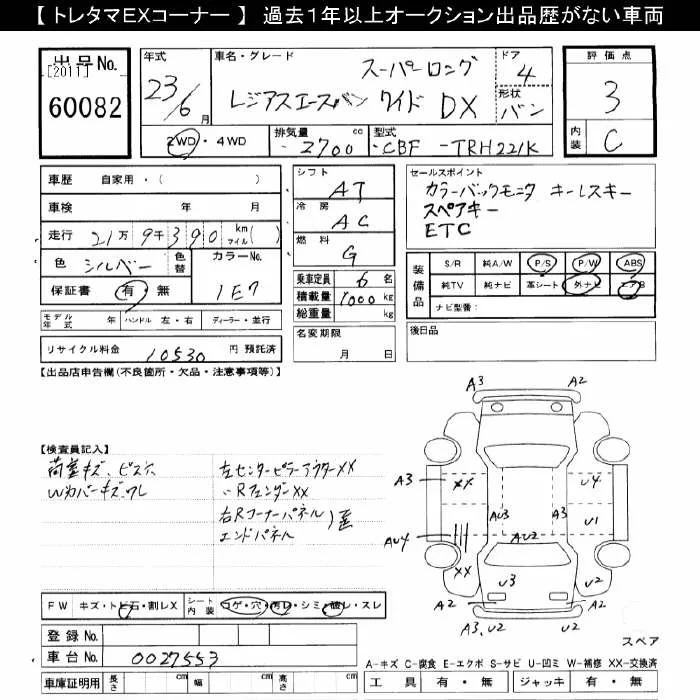 【 トレタマEXコーナー 】 過去1年以上オークション出品歴がない車両
出品No.
[2011]
60082
年式
23/6月
車名・グレード
スーパーロング
レジアスエースバン ワイド DX
ドア
4
形状
バン
評価点
3
内装
C
2WD・4WD
排気量
2700 cc
型式
CBF -TRH221K
車歴 自家用・( )
車検 年 月
走行 21万9千390 km マイル( )
色 シルバー 色替
カラーNo.
1E7
保証書 有・無
モデル年式 年
ハンドル 左・右
ディーラー・並行
リサイクル料金 10530 円 預託済
シフト
AT
冷房
AC
燃料
G
乗車定員 6 名
積載量 1000 kg
総重量 kg
名変期限
月 日
セールスポイント
カラーバックモニタ キーレスキー
スペアキー
ETC
装備品
S/R 純A/W P/S P/W ABS
純TV 純ナビ 革シート 外ナビ エアB
ナビ型番:
後日品
【出品店申告欄(不良箇所・欠品・注意事項等)】
【検査員記入】
荷室キズ、ビス穴
Wカバーキズ、ワレ
左センターピラーアウターXX
〃RフェンダーXX
右Rコーナーパネル
エンドパネル
A3
A2
A3
XX
U4
AU3
A3
U1
AU4
AU2
XX
U3
U2
A3, U2
U2
スペア
FW キズ・トビ石・割レX
シート内装 コゲ・穴・汚レ・シミ・破レ・スレ
登録No.
車台No. 0027553
車庫証明用 長さ cm 幅 cm 高さ cm
A-キズ C-腐食 E-エクボ S-サビ U-凹ミ W-補修 XX-交換済
工具 有・無 ジャッキ 有・無